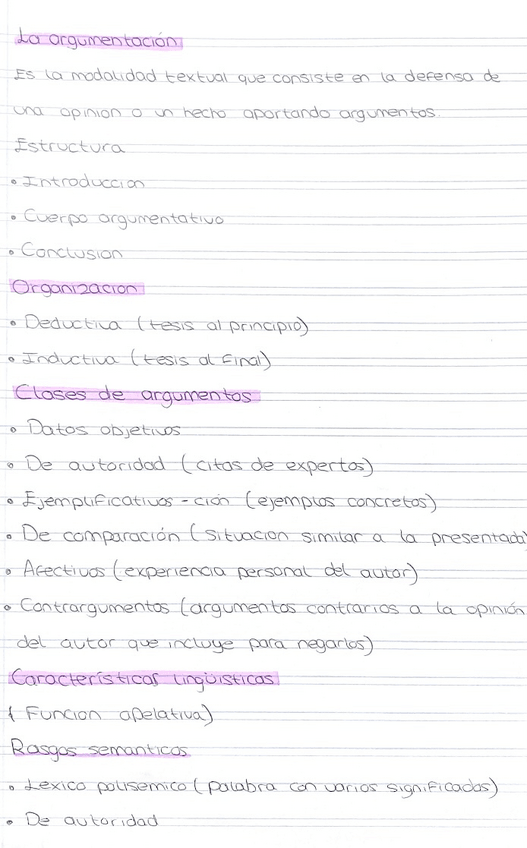 La argumentación
Es la modalidad textual que consiste en la defensa de
una opinion o un hecho aportando argumentos.
Estructura
• Introduccion
• Cuerpo argumentativo
• Conclusion
Organizacion
• Deductiva (tesis al principio)
• Inductiva (tesis al final)
Clases de argumentos
• Datos objetivos
• De autoridad (citas de expertos)
• Ejemplificativos - ción (ejemplos concretos)
• De comparación (situacion similar a la presentada)
• Afectivos (experiencia personal del autor)
• Contrargumentos (argumentos contrarios a la opinión
del autor que incluye para negarlos)
Características lingüisticas
(Funcion apelativa)
Rasgos semanticos
• Lexico polisemico (palabra con varios significados)
• De autoridad